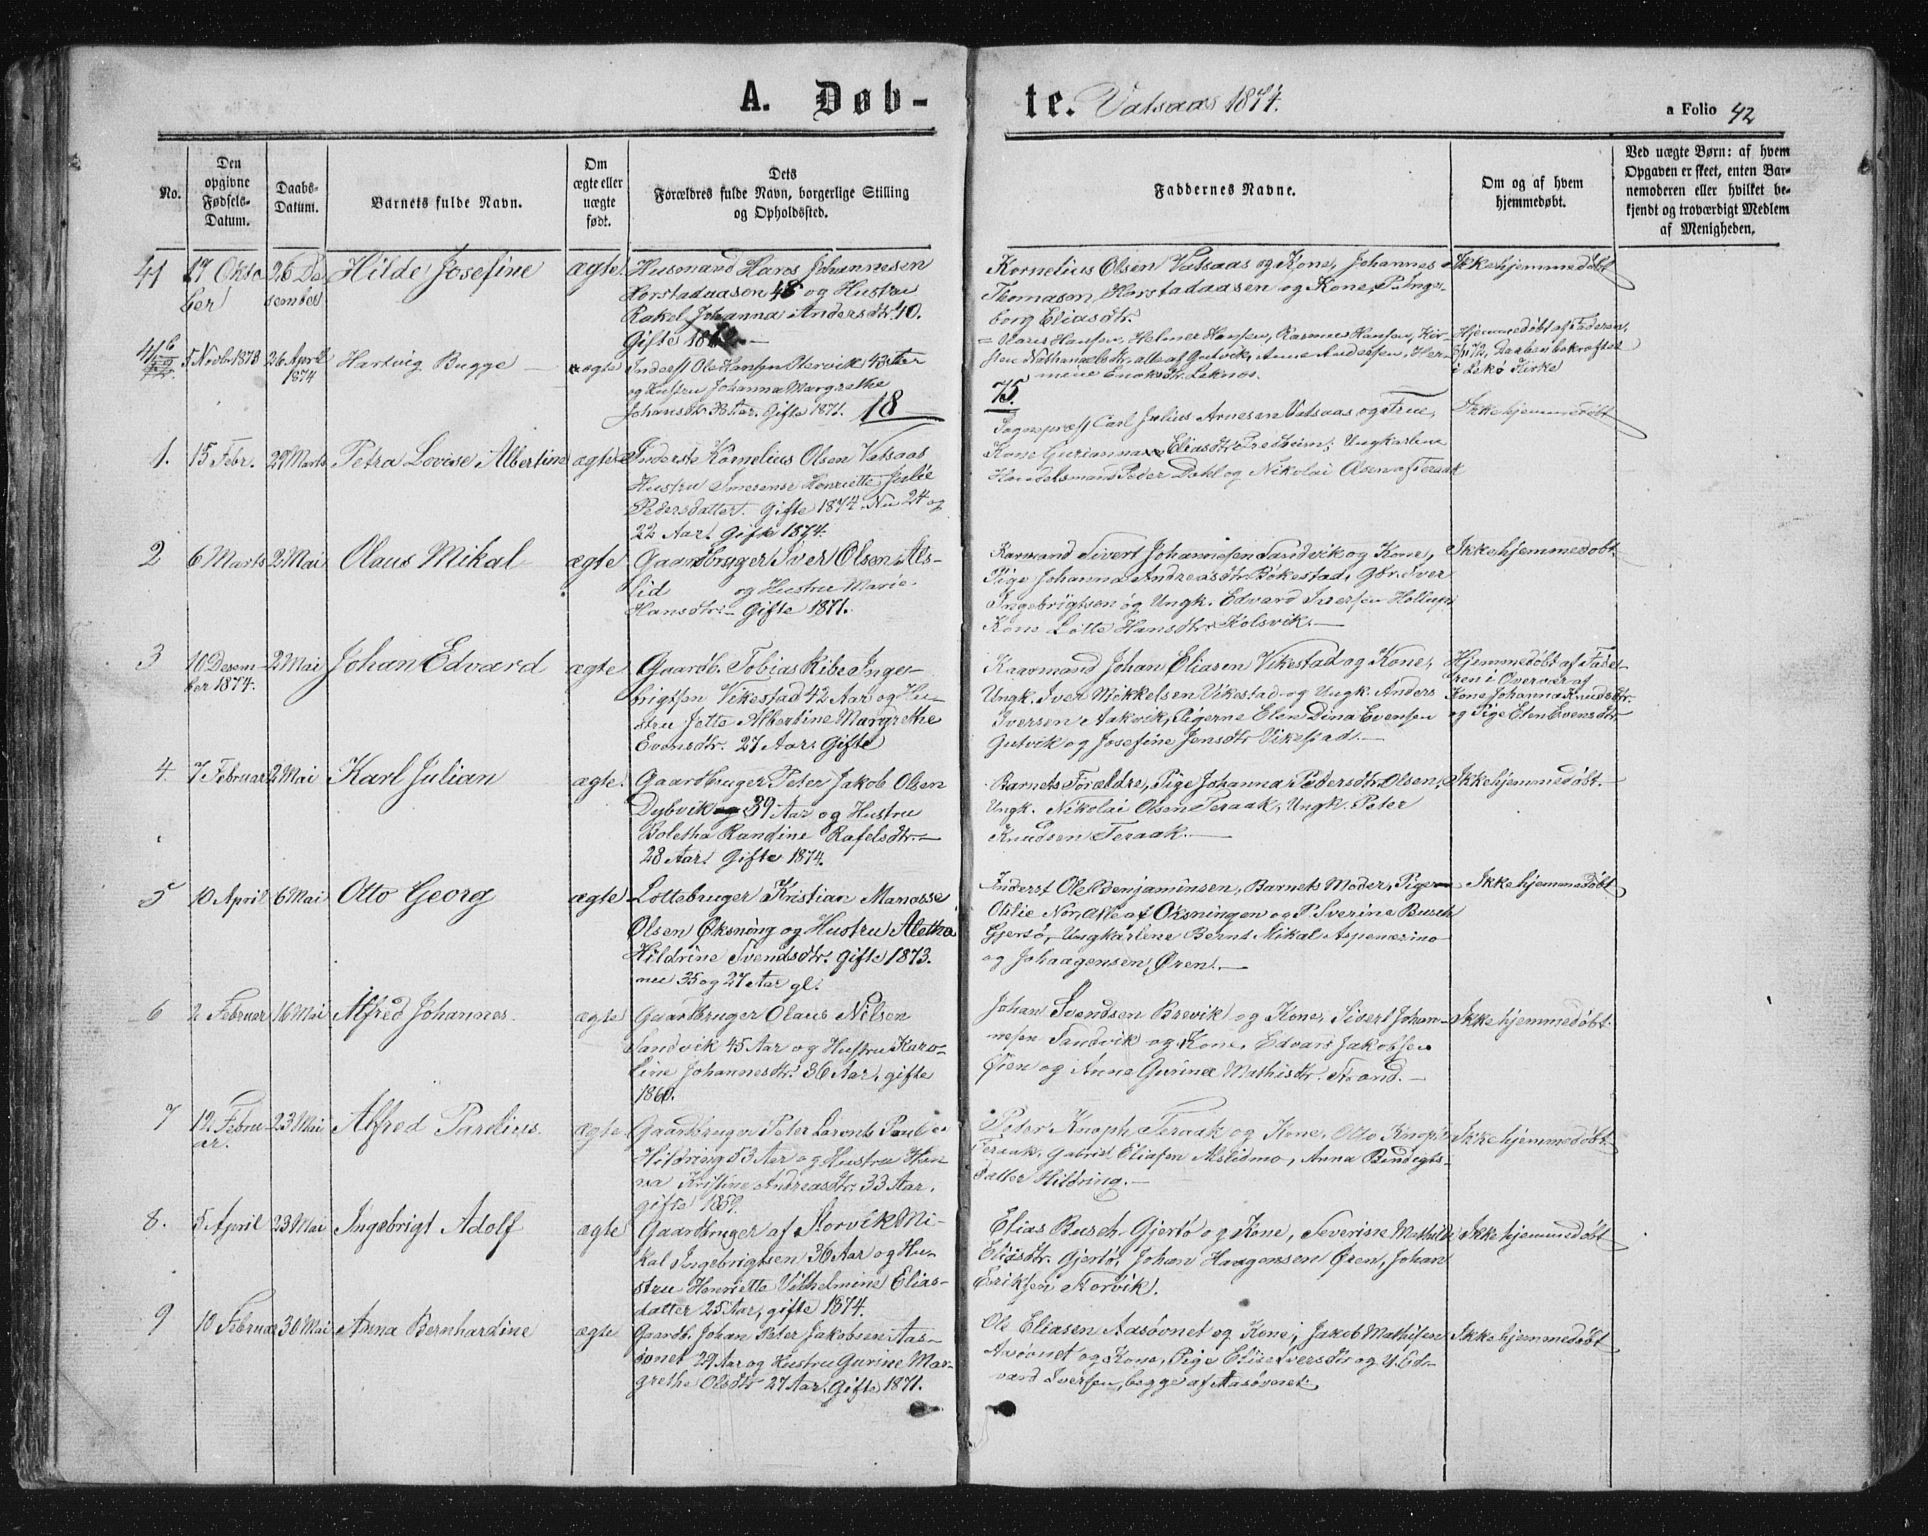 A. Døb-
te. Vatsaas 1874.
a Folio 42
No.
Den opgivne Fødsels-Datum.
Daabs-Datum.
Barnets fulde Navn.
Om ægte eller uægte født.
Dets Forældres fulde Navn, borgerlige Stilling og Opholdssted.
Faddernes Navne.
Om og af hvem hjemmedøbt.
Ved uægte Børn: af hvem
Opgaven er skeet, enten Bar-
nemoderen eller hvilket be-
kjendt og troværdigt Medlem
af Menigheden.
41 17 Okto 26 De Hilde Josefine ægte Husmand Hans Johannesen
ber sembes Horstadaasen 48 og Hustru
Rakel Johanna Andersdtr. 40.
Gifte
Kornelius Olsen Vatsaas og Kone, Johannes
Thomasen Horstadaasen og Kone, P. Inge-
borg Eliasdtr.
Ikke hjemmedøbt
41b 5 Novb. 1873 26 April 1874 Hartvig Bugge ægte Inderst Ole Hansen
og Hustru Johanna Margrethe
Johansdtr. 38 Aar. Gifte 1871. 18
Olaus Hansen, Helmer Hansen, Rasmus Hansen, Kir-
alle af Gutvik, Anne Andersen, Her-
mine Enoksdtr. Leknes.
75.
Hjemmedøbt af Faderen,
Daaben bekræftet
i Lekø Kirke
1. 15 Febr. 29 Marts Petra Lovise Albertine ægte Inderste Kornelius Olsen Vatsaas
Hustru Henriette Julie
Pedersdatter. Gifte 1874. Nu 24 og
22 Aar. Gifte 1874.
Sognepræst Carl Julius Arnesen Vatsaas og Frue,
Kone Gurianna Eliasdtr. Fredheim, Ungkarlene
Handelsmand Peder Dahl og Nikolai Olsen af Teraak
Ikke hjemmedøbt
2 6 Marts 2 Mai Olaus Mikal ægte Gaardbruger Iver Olsen Als-
lid og Hustru Marie
Hansdtr. Gifte 1871.
Kaarmand Sivert Johannesen Sandvik og Kone,
Pige Johanna Andreasdtr. Bøkestad, Gbr. Iver
Ingebrigtsen og Ungk. Edvard Iversen
Kone Lotte Hansdtr. Kolsvik.
Ikke hjemmedøbt
3 10 Desem- 2 Mai Johan Edvard ægte Gaardb. Tobias Ribe Inge-
ber 1874. brigtsen Vikestad 42 Aar og Hu-
stru Jotta Albertine Margrethe
Evensdtr. 27 Aar. Gifte
Kaarmand Johan Eliasen Vikestad og Kone,
Ungk. Iver Mikkelsen Vikestad og Ungk. Anders
Iversen Aakvik, Pigerne Elen Dina Evensen
Gutvik og Josefine Jensdtr Vikestad.
Hjemmedøbt af Fade-
ren i Overvær af
Kone Johanna Knudsdtr.
og Pige Elen Evensdtr.
4. 7 Februar 2 Mai Karl Julian ægte. Gaardbruger Peter Jakob Olsen
Dybvik 39 Aar og Hustru
Boletha Randine Rafelsdtr.
28 Aar. Gifte 1874.
Barnets Forældre, Pige Johanna Pedersdtr. Olsen,
Ungk. Nikolai Olsen Teraak, Ungk. Peter
Knudsen Teraak.
Ikke hjemmedøbt.
5 10 April 6 Mai Otto Georg ægte Lottebruger Kristian Manasse
Olsen Øksning og Hustru Aletha
Hildrine Svendsdtr. Gifte 1873.
nu 35 og 27 Aar gl.
Inderst Ole Benjaminsen, Barnets Moder, Pigerne
Otilie Nor, Alle af Oksningen og P. Sverine Busch
Gjersø, Ungkarlene Bernt Mikal
og Joh. Øren.
Ikke hjemmedøbt
6 2 Februar 16 Mai Alfred Johannes. ægte Gaardbruger Olaus Nilsen
Sandvik 45 Aar og Hustru Karo-
line Johannesdtr. 36 Aar, gifte
1860.
Johan Svendsen Brevik og Kone, Sivert Johan-
nesen Sandvik og Kone, Edvard Jakobsen
Øien og Anne Gurina Mathisdtr. Strand.
Ikke hjemmedøbt
7 12 Febru- 23 Mai Alfred Parelius. ægte Gaardbruger Peter Lorents Paul
ar. Hildring 53 Aar og Hustru Han-
na Kristine Andreasdtr. 33 Aar.
gifte 1859.
Peter Knoph Teraak og Kone, Otto Knoph
Teraak, Gabriel Eliasen Alslidmo, Anna Bendigts-
datter Hildring.
Ikke hjemmedøbt
8. 5 April 23 Mai Ingebrigt Adolf ægte Gaardbruger af Storvik Mi-
kal Ingebrigtsen 36 Aar og Hu-
stru Henriette Vilhelmine Elias-
datter 25 Aar, gifte 1874.
Elias Busch Gjersø og Kone, Severine Mathilde
Eliasdtr. Gjersø, Johan Haagensen Øren, Johan
Eriksen Storvik.
Ikke hjemmedøbt
9 10 Februar 30 Mai Anna Bernhardine ægte Gaardb. Johan Peter Jakobsen Aas-
øvnet 29 Aar og Hustru Gurine Mar-
grethe Olsdtr 27 Aar. Gifte 1871.
Ole Eliasen Aasøvnet og Kone, Jakob Mathisen
Asøvnet og Kone, Pige Elise Iversdtr og U. Ed-
vard Iversen, begge af Aasøvnet
Ikke hjemmedøbt